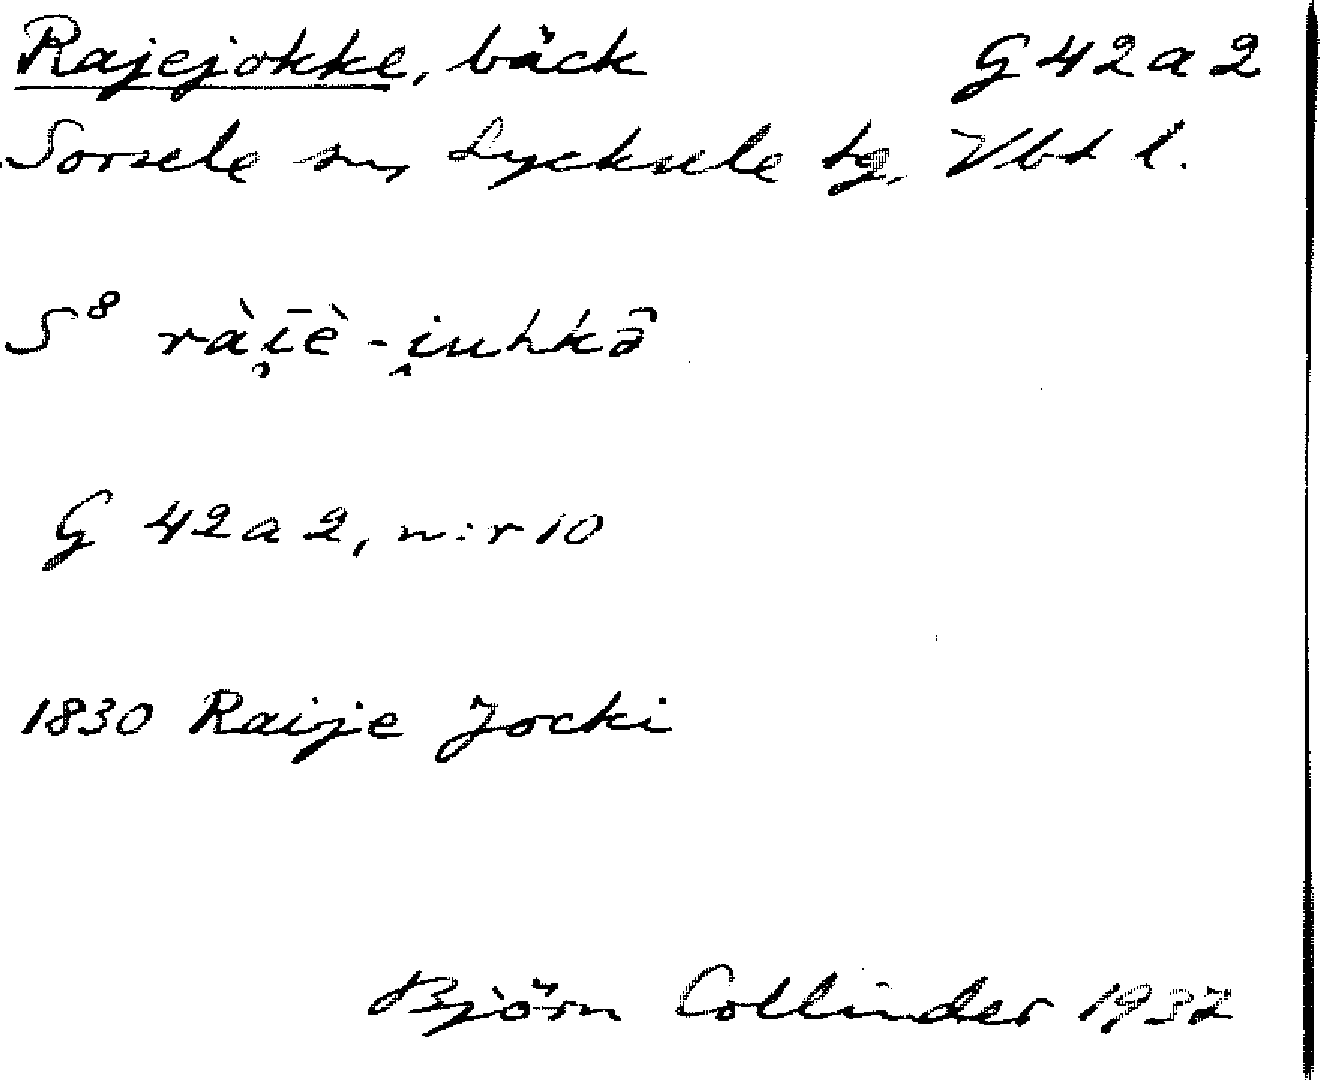 Rajejokke, bäck G 42 a 2
Sorsele sn, Lycksele tg, Vbt l.
S⁸ rài̯īè - i̯uhkâ
G 42 a 2, n:r 10
1830 Raije Jocki
Björn Collinder 1932